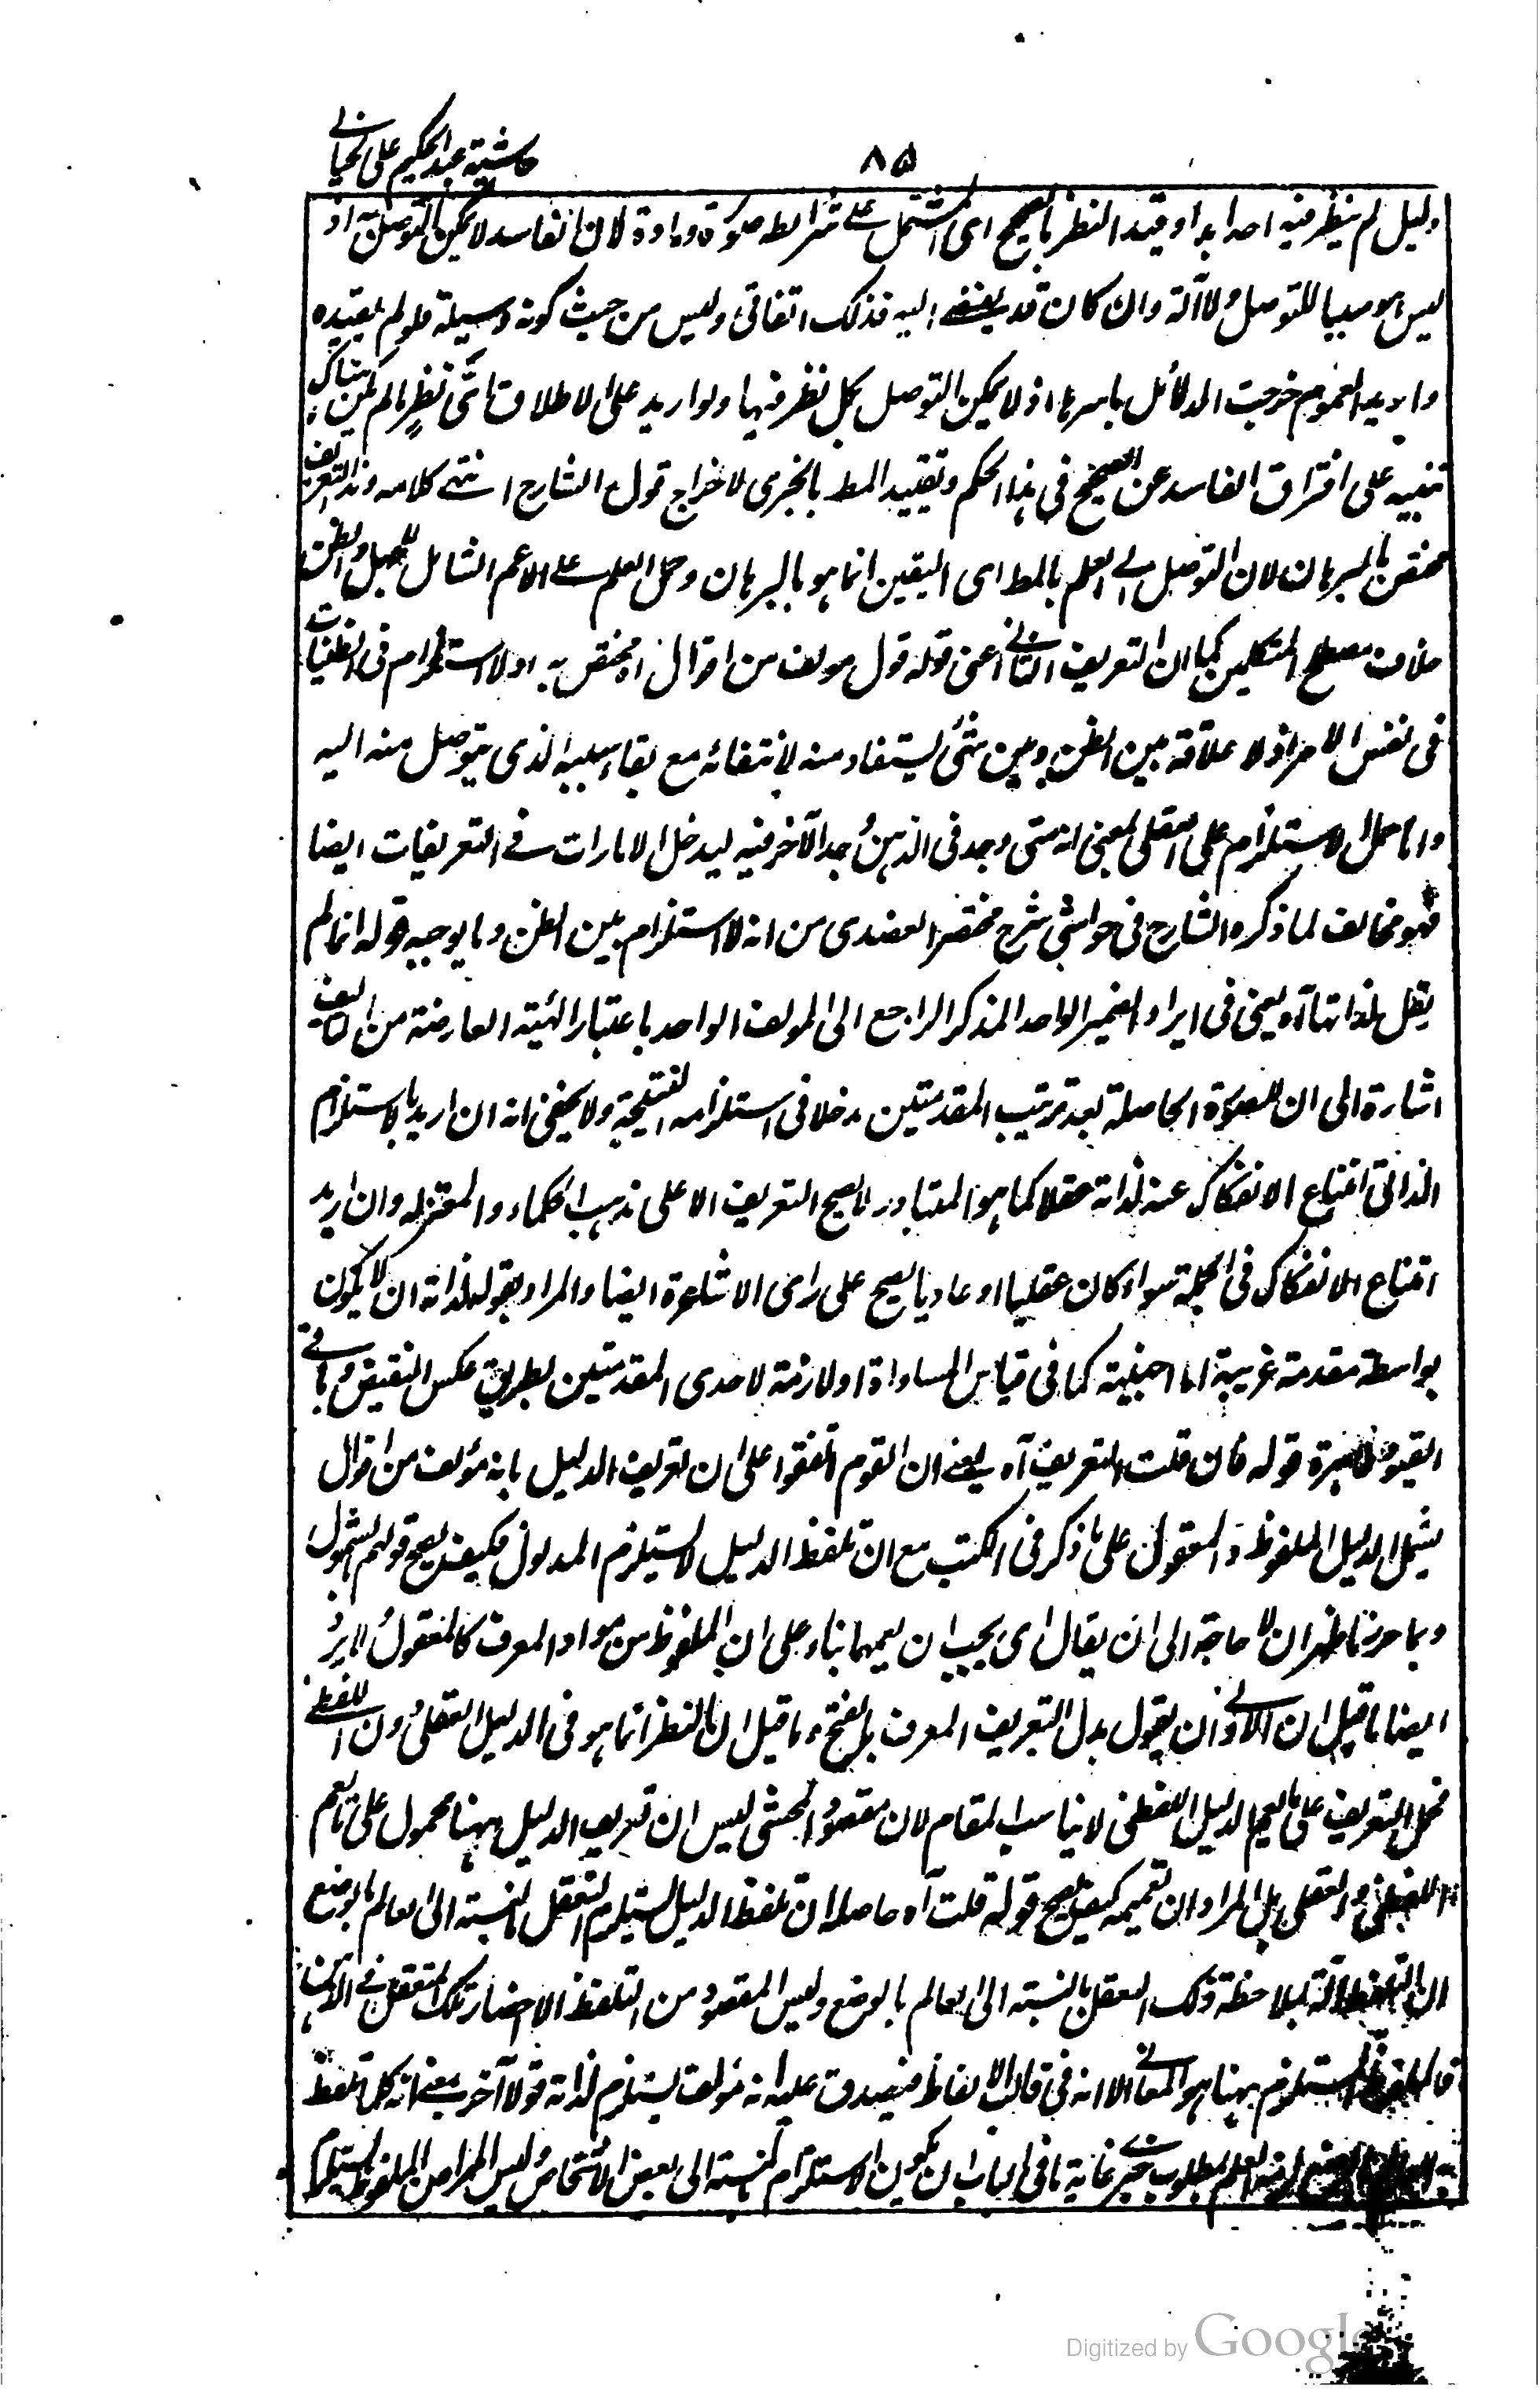 حاشية عبد الحكيم على الخيالي
٨٥
دليل لم ينظر فيه احد ابدا وقيد النظر بالصحيح اى المشتمل على شرائطه صورة ومادة لان الفاسد لا يمكن التوصل به اذ
ليس هو سببا للتوصل ولا آلة وان كان قد يفضى اليه فذلك اتفاقى وليس من حيث كونه وسيلة فلو لم يقيده
واريد العموم خرجت الدلائل باسرها اذ لا يمكن التوصل بكل نظر فيها ولو اريد على الاطلاق اى نظر ما لم يكن هناك
تنبيه على افتراق الفاسد عن الصحيح فى هذا الحكم وتقييد المط بالخبرى لاخراج قول الشارح انتهى كلامه وهذا التعريف
مختص بالبرهان لان التوصل الى العلم بالمط اى اليقين انما هو بالبرهان وحمل العلم على الاعم الشامل للجهل والظن
خلاف مصطلح المتكلمين كما ان التعريف الثانى اعنى قوله قول مولف من اقوال اه مختص به اذ لا استلزام فى الظنيات
فى نفس الامر اذ لا علاقة بين الظن وبين شئ يستفاد منه لانتفائه مع بقاء سببه الذى يتوصل منه اليه
واما حمل الاستلزام على العقلى بمعنى انه متى وجد فى الذهن وجد الآخر فيه ليدخل الامارات فى التعريفات ايضا
فهو مخالف لما ذكره الشارح فى حواشى شرح مختصر العضدى من انه لا استلزام بين الظن وما يوجبه قوله انما لم
يقل لذاتها آه يعنى فى ايراد الضمير الواحد المذكر الراجع الى المولف الواحد باعتبار الهيئة العارضة من التاليف
اشارة الى ان للصورة الحاصلة بعد ترتيب المقدمتين مدخلا فى استلزامه النتيجة ولا يخفى انه ان اريد بالاستلزام
الذاتى امتناع الانفكاك عنه لذاته عقلا كما هو المتبادر لا يصح التعريف الا على مذهب الحكماء والمعتزله وان اريد
امتناع الانفكاك فى الجملة سواء كان عقليا او عاديا يصح على راى الاشاعرة ايضا والمراد بقوله لذاته ان لا يكون
بواسطة مقدمة غريبة اما اجنبية كما فى قياس المساواة او لازمة لاحدى المقدمتين بطريق عكس النقيض وباقى
القيود ظاهرة قوله فان قلت التعريف آه يعنى ان القوم اتفقوا على ان تعريف الدليل بانه مؤلف من اقوال
يشمل الدليل الملفوظ والمعقول على ما ذكر فى الكتب مع ان تلفظ الدليل لا يستلزم المدلول فكيف يصح قولهم بالشمول
وبما حررنا ظهر ان لا حاجة الى ان يقال اى يجب ان يعمهما بناء على ان الملفوظ من مواد المعرف كالمعقول ولا يرد
ايضا ما قيل ان الاولى ان يقول بدل التعريف المعرف بالفتح وما قيل ان النظر انما هو فى الدليل العقلى دون اللفظى
فحمل التعريف على ما يعم الدليل اللفظى لا يناسب المقام لان مقصود المحشى ليس ان تعريف الدليل ههنا محمول على ما يعم
اللفظى والعقلى بل المراد ان تعميمه كيف يصح قوله قلت آه حاصله ان تلفظ الدليل يستلزم التعقل بالنسبة الى العالم بالوضع
لان التلفظ آلة لملاحظة ذلك التعقل بالنسبة الى العالم بالوضع وليس المقصود من التلفظ الا احضار تلك المتعقل فى الذهن
فالملفوظ المستلزم ههنا هو المعانى الا انه فى قالب الالفاظ فيصدق عليه انه مؤلف يستلزم لذاته قولا آخر بمعنى انه كل تلفظ
به العالم لزمه العلم بمطلوب خبرى غاية ما فى الباب ان يكون الاستلزام بالنسبة الى بعض الاشخاص وليس المراد من الملفوظ يستلزم
Digitized by Google